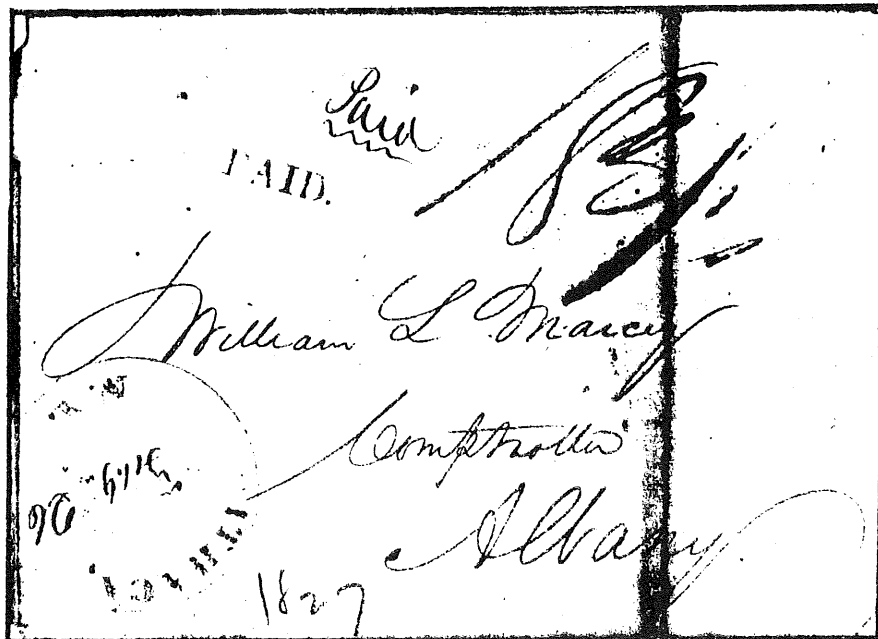 Paid
PAID.
William L Marcy
Comptroller
Albany
1827